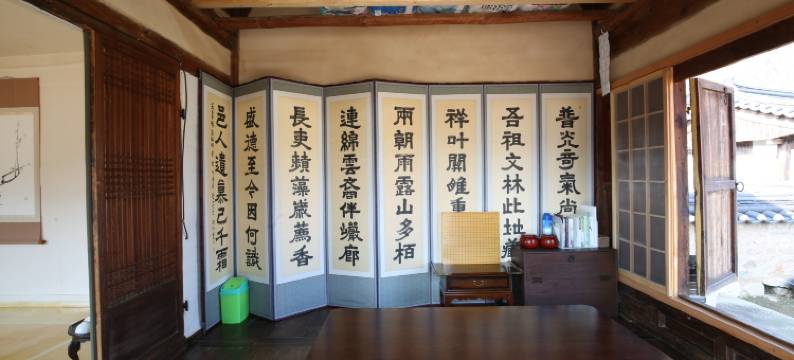 普光奇氣尚
吾祖文林此地藏
祥叶關雎重
兩朝雨露山多栢
連綿雲裔伴巖廊
長吏蘋藻歲薦香
盛德至今因何識
邑人遺慕已千霜